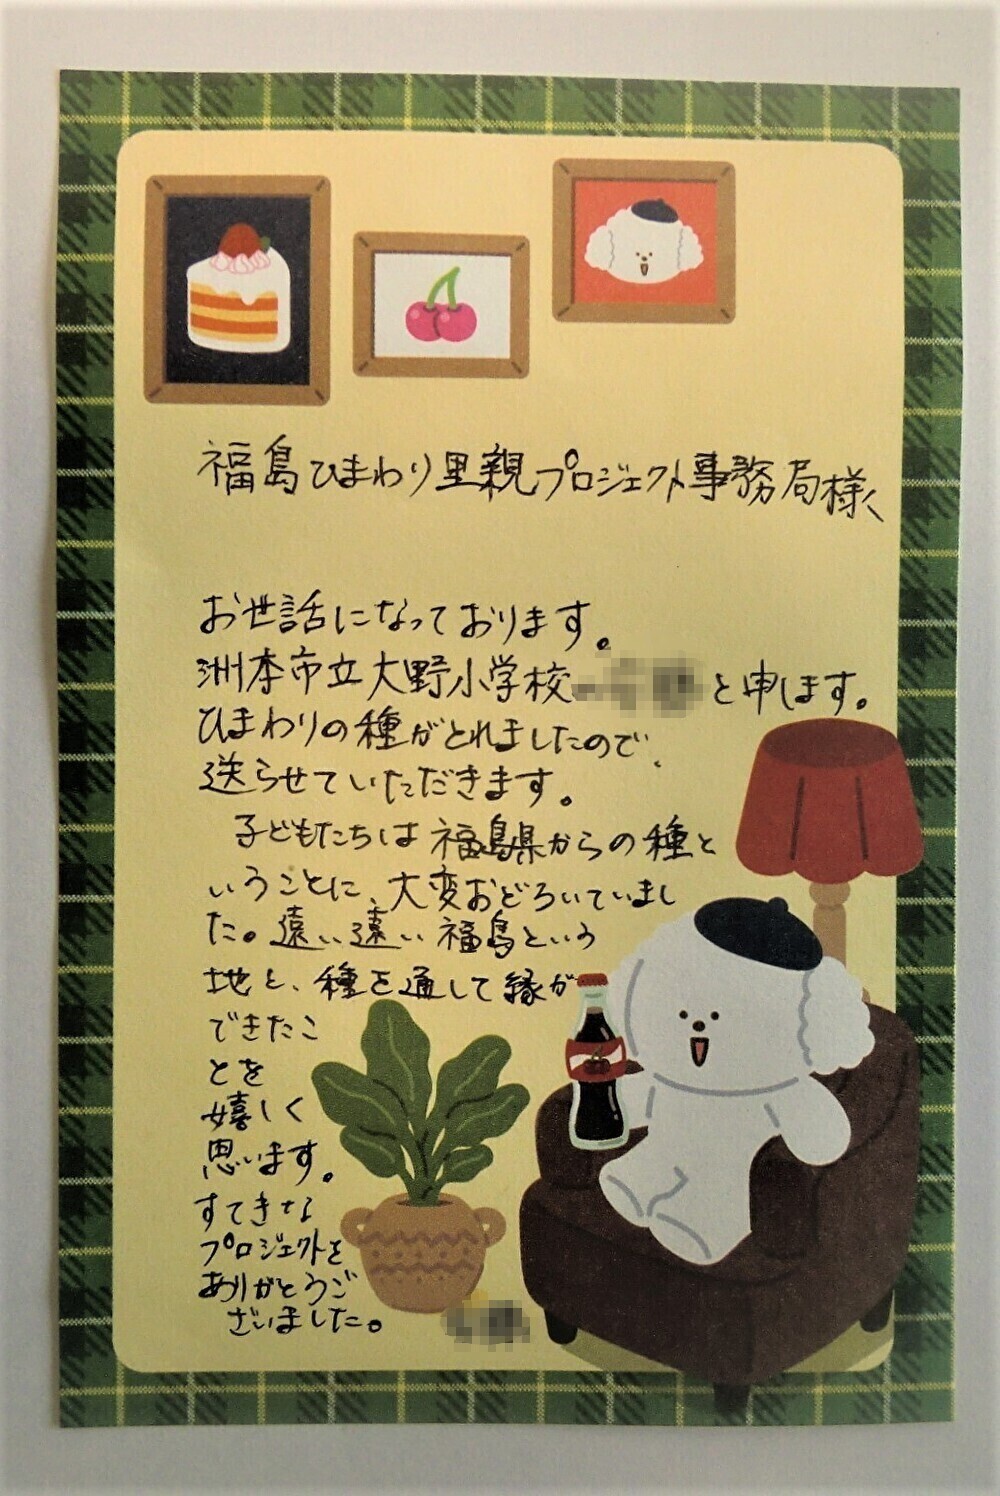 福島ひまわり里親プロジェクト事務局様へ
お世話になっております。
洲本市立大野小学校 と申します。
ひまわりの種がとれましたので、
送らせていただきます。
子どもたちは福島県からの種と
いうことに、大変おどろいていまし
た。遠い遠い福島という
地と、種を通して縁が
できたこ
とを
嬉しく
思います。
すてきな
プロジェクトを
ありがとうご
ざいました。